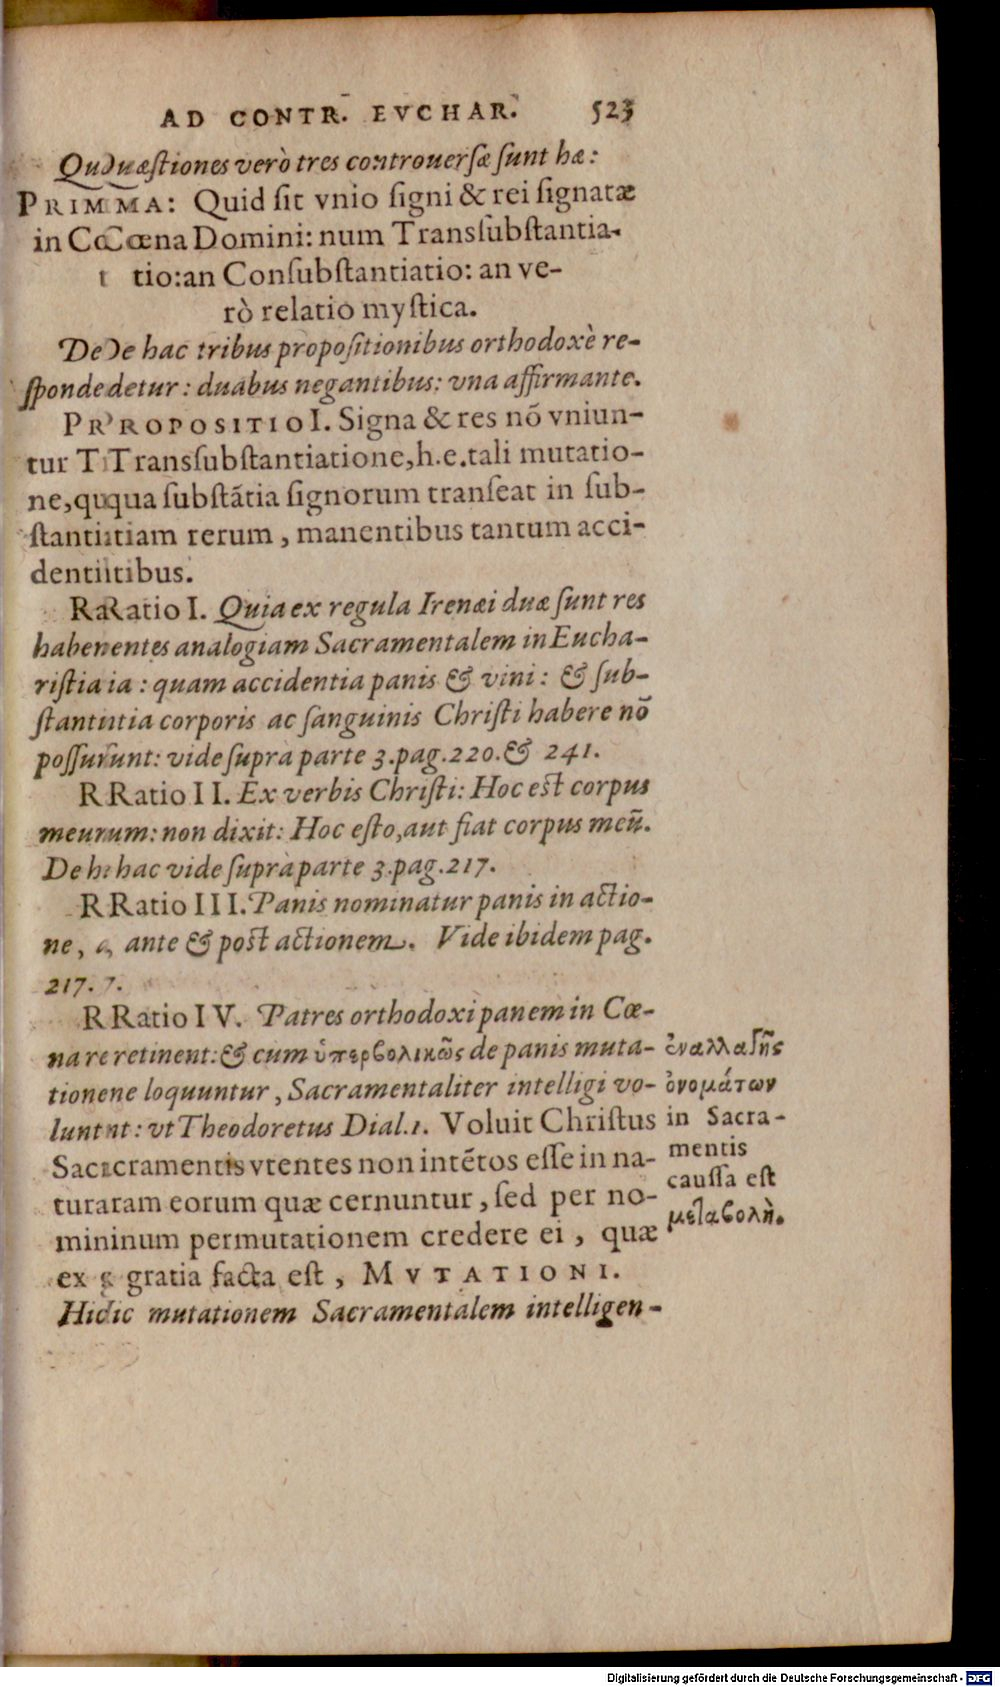 AD CONTR. EVCHAR. 523
Quæſtiones verò tres controuerſæ ſunt hæ:
PRIMA: Quid ſit vnio ſigni & rei ſignatæ
in Cœna Domini: num Transſubſtantia-
tio: an Conſubſtantiatio: an ve-
rò relatio myſtica.
De hac tribus propoſitionibus orthodoxè re-
ſpondetur: duabus negantibus: vna affirmante.
PROPOSITIO I. Signa & res nõ vniun-
tur Transſubſtantiatione, h.e. tali mutatio-
ne, qua ſubſtãtia ſignorum tranſeat in ſub-
ſtantiam rerum, manentibus tantum acci-
dentibus.
Ratio I. Quia ex regula Irenæi duæ ſunt res
habentes analogiam Sacramentalem in Eucha-
riſtia: quam accidentia panis & vini: & ſub-
ſtantia corporis ac ſanguinis Chriſti habere nõ
poſſunt: vide ſupra parte 3. pag. 220. & 241.
Ratio II. Ex verbis Chriſti: Hoc eſt corpus
meum: non dixit: Hoc eſto, aut fiat corpus meũ.
De hac vide ſupra parte 3. pag. 217.
Ratio III. Panis nominatur panis in actio-
ne, ante & poſt actionem. Vide ibidem pag.
217.
Ratio IV. Patres orthodoxi panem in Cœ-
na retinent: & cum ὑπερβολικῶς de panis muta-
tione loquuntur, Sacramentaliter intelligi vo-
lunt: vt Theodoretus Dial. 1. Voluit Chriſtus
Sacramentis vtentes non intẽtos eſſe in na-
turam eorum quæ cernuntur, ſed per no-
minum permutationem credere ei, quæ
ex gratia facta eſt, MVTATIONI.
Hic mutationem Sacramentalem intelligen-
ἐναλλαγῆς
ὀνομάτων
in Sacra-
mentis
cauſſa eſt
μεταβολὴ.
Digitalisierung gefördert durch die Deutsche Forschungsgemeinschaft - DFG